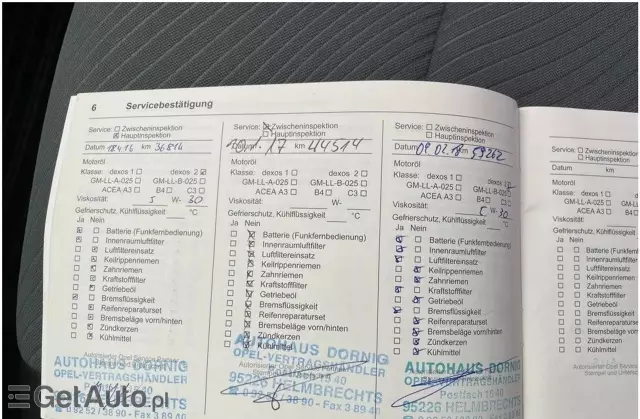 6 Servicebestätigung
Service: Zwischeninspektion
Hauptinspektion
Datum 18.4.16 km 36814
Motoröl
Klasse: dexos 1 dexos 2
GM-LL-A-025 GM-LL-B-025
ACEA A3 B4 C3
Viskosität: 5 W- 30
Gefrierschutz, Kühlflüssigkeit °C
Ja Nein
Batterie (Funkfernbedienung)
Innenraumluftfilter
Luftfiltereinsatz
Keilrippenriemen
Zahnriemen
Kraftstofffilter
Getriebeöl
Bremsflüssigkeit
Reifenreparaturset
Bremsbeläge vorn/hinten
Zündkerzen
Kühlmittel
Autorisierter Opel Service Partner
AUTOHAUS DORNIG
OPEL-VERTRAGSHÄNDLER
Postfach 15 40
95226 HELMBRECHTS
09252/38 90 - Fax 3 89 40
Service: Zwischeninspektion
Hauptinspektion
17 km 44514
Motoröl
Klasse: dexos 1 dexos 2
GM-LL-A-025 GM-LL-B-025
ACEA A3 B4 C3
Viskosität: W-
Gefrierschutz, Kühlflüssigkeit °C
Ja Nein
Batterie (Funkfernbedienung)
Innenraumluftfilter
Luftfiltereinsatz
Keilrippenriemen
Zahnriemen
Kraftstofffilter
Getriebeöl
Bremsflüssigkeit
Reifenreparaturset
Bremsbeläge vorn/hinten
Zündkerzen
Kühlmittel
AUTOHAUS DORNIG
OPEL-VERTRAGSHÄNDLER
95226 HELMBRECHTS
Service: Zwischeninspektion
Hauptinspektion
Datum 09.02.18 km 59262
Motoröl
Klasse: dexos 1 dexos
GM-LL-A-025 GM-LL-B-025
ACEA A3 B4 C3
Viskosität: 5 W- 30
Gefrierschutz, Kühlflüssigkeit °C
Ja Nein
Batterie (Funkfernbedienung)
Innenraumluftfilter
Luftfiltereinsatz
Keilrippenriemen
Zahnriemen
Kraftstofffilter
Getriebeöl
Bremsflüssigkeit
Reifenreparaturset
Bremsbeläge vorn/hinten
Zündkerzen
Kühlmittel
AUTOHAUS DORNIG
OPEL-VERTRAGSHÄNDLER
Postfach 15 40
95226 HELMBRECHTS
Service:
Datum
Motoröl
Klasse: dexos 1
GM-LL-A-025
ACEA A3
Viskosität:
Gefrierschutz, Kühlflüssig
Ja Nein
Batterie (Funkfernb
Innenraumluftfilter
Luftfiltereinsatz
Keilrippenriemen
Zahnriemen
Kraftstofffilter
Getriebeöl
Bremsflüssigkeit
Reifenreparaturset
Bremsbeläge vorn
Zündkerzen
Kühlmittel
Autorisierter Opel Service
Stempel und Unters
GetAuto.pl